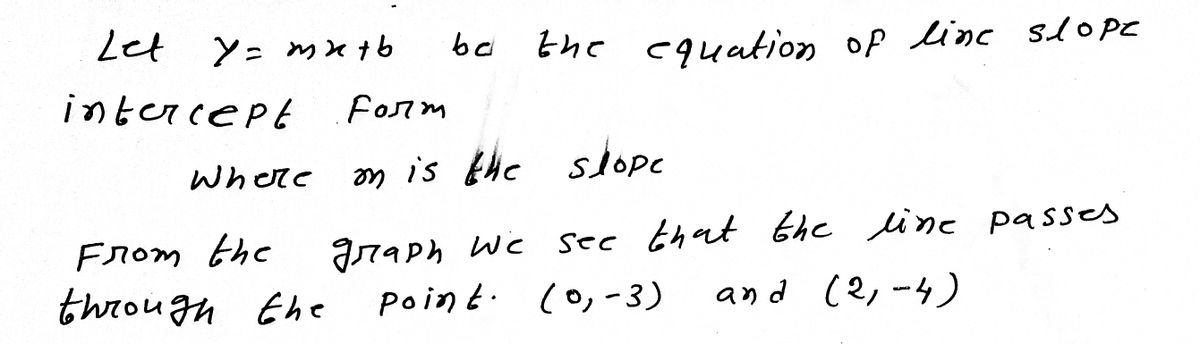 Let y = mx + b be the equation of line slope
intercept form
where m is the slope
From the graph we see that the line passes
through the point. (0,-3) and (2,-4)